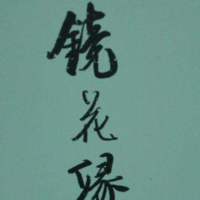 镜花缘